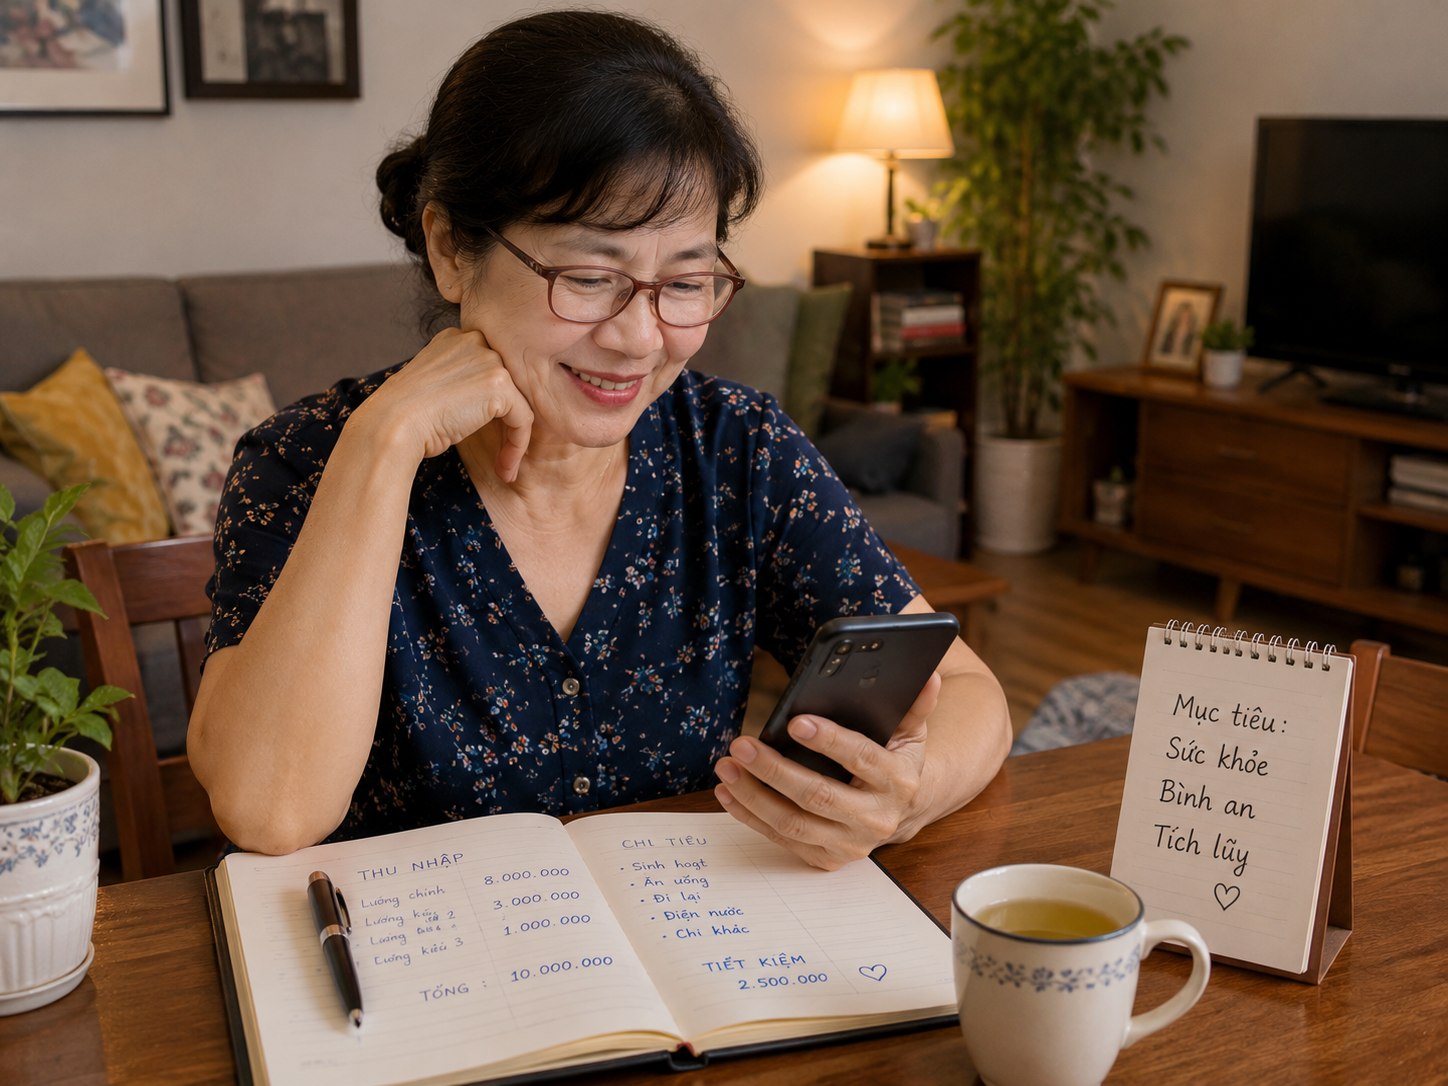 THU NHẬP
Lương chính 8.000.000
Lương 2 3.000.000
Lương 1.000.000
Lương kiểu 3
TỔNG : 10.000.000
CHI TIÊU
• Sinh hoạt
• Ăn uống
• Đi lại
• Điện nước
• Chi khác
TIẾT KIỆM
2.500.000
Mục tiêu:
Sức khỏe
Bình an
Tích lũy